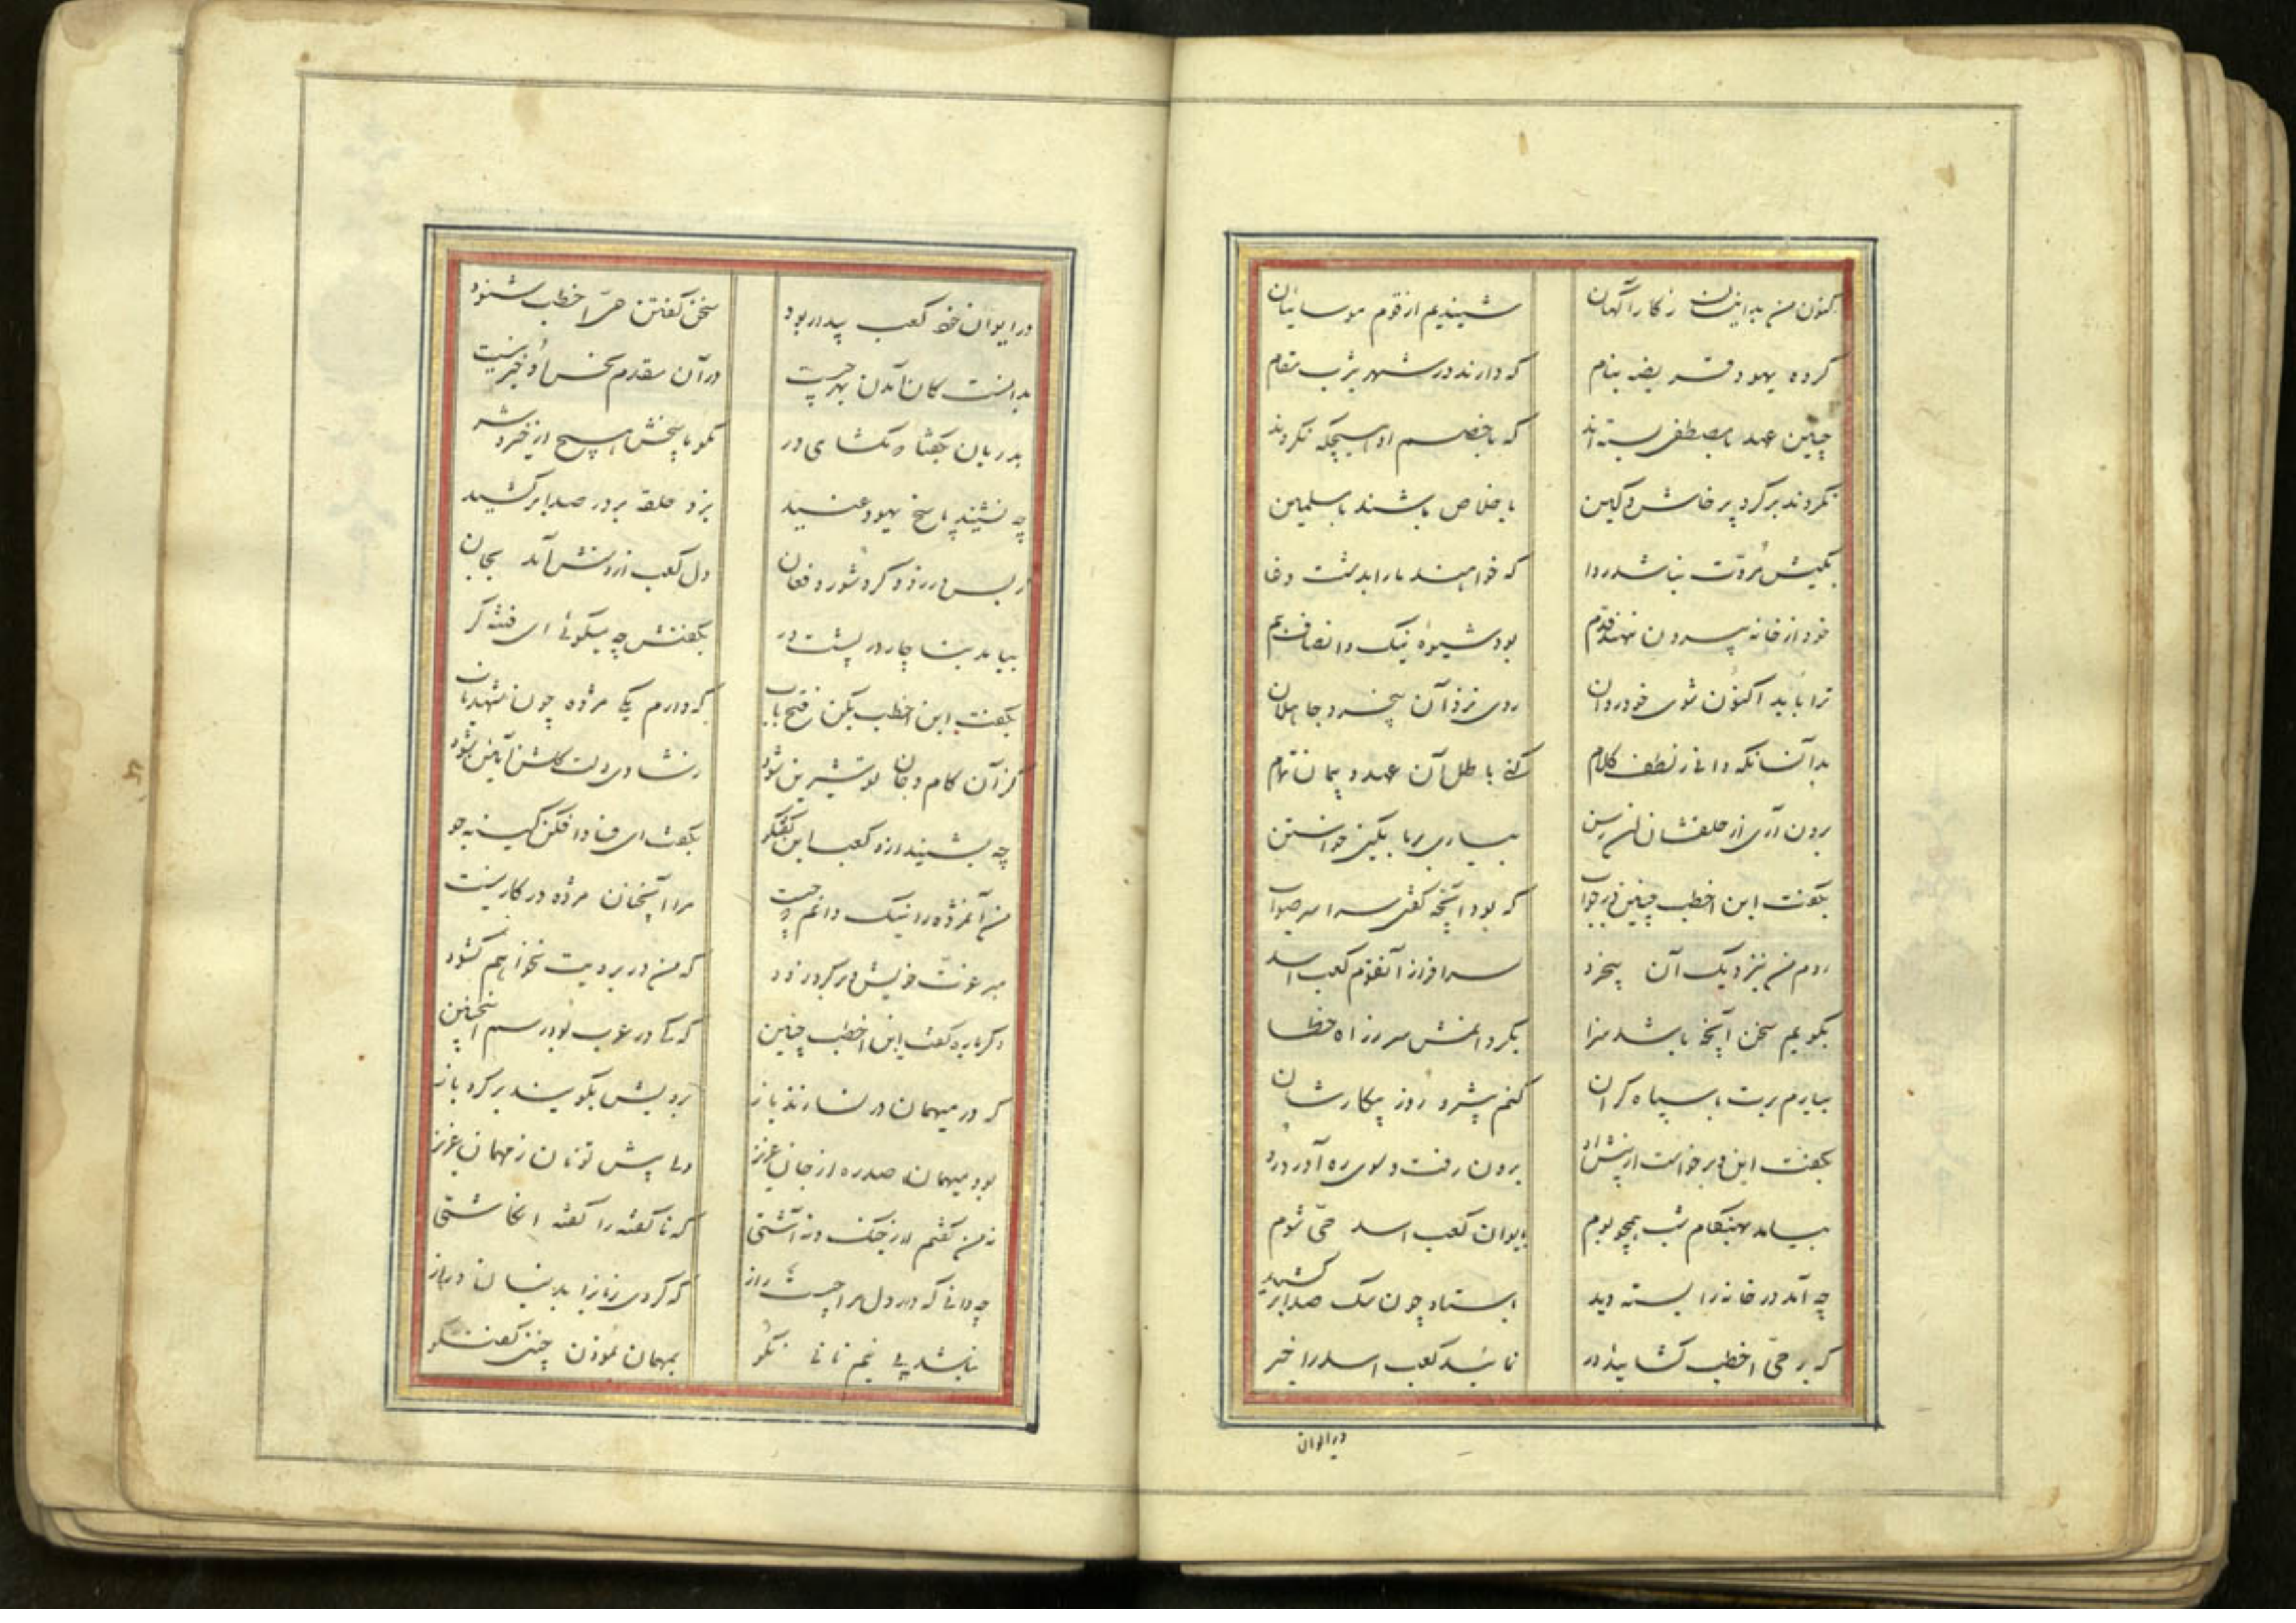 کنون من بداینسان ز کارآگهان شنیدیم از قوم موسائیان
گروه یهود قریضه بنام که دارند در شهر یثرب مقام
چنین عهد با مصطفی بسته‌اند که با خصم او هیچگه نگروند
نگردند بر گرد پرخاش و کین باخلاص باشند با مسلمین
بکیش مروت نباشد روا که خواهند ما را بدشت وغا
خود از خانه بیرون ننهند قدم بود شیوه نیک و انصاف هم
ترا باید اکنون شوی خود روان روی نزد آن بیخرد جاهلان
بدآنسانکه دانی ز لطف کلام کنی باطل آن عهد و پیمان تمام
برون آری از حلقشان رسن بیاری بما بکین خواستن
بگفت ابن اخطب چنین در جواب که بود آنچه گفتی سراسر صواب
روم من بنزدیک آن بیخرد سرافراز آنقوم کعب اسد
بگویم سخن آنچه باشد سزا بگردانمش سر ز راه خطا
بیارم برت با سپاه گران کنم پیشرو روز پیکارشان
بگفت این و برخواست از پیش او برون رفت و سوی ره آورد رو
بیامد بهنگام شب همچو بوم بایوان کعب اسد حی شوم
چه آمد در خانه را بسته دید استاد چون سگ صدا برکشید
که بر حی اخطب گشائید در نمائید کعب اسد را خبر
در ایوان
در ایوان خود کعب بیدار بود سخن گفتن حی اخطب شنود
بدانست کان آمدن بهر چیست در آن مقدم نحس او خیر نیست
بدربان بگفتا که مگشای در مگو پاسخش هیچ از خیر و شر
چه نشنید پاسخ یهود عنید بزد حلقه بر در صدا برکشید
ز بس در زد و کرد شور و فغان دل کعب از دستش آمد بجان
بیامد بناچار در پشت در بگفتش چه میگوئی ای فتنه گر
بگفت ابن اخطب بکن فتح باب که دارم یکی مژده چون شهد ناب
کز آن کام و جان تو شیرین شود ز شادی دلت گلشن آئین شود
چه بشنید ازو کعب این گفتگو بگفت ای فسادافکن کینه جو
من آنمژده را نیک دانم که چیست مرا آنچنان مژده در کار نیست
ببر عونت خویش و برگرد زود که من در برویت نخواهم گشود
دگرباره گفت ابن اخطب چنین که کی در عرب بود رسم اینچنین
که در میهمان در نسازند باز برویش بگویند برگرد باز
بود میهمان صد ره از جان عزیز ولی پیش تو نان ز مهمان عزیز
نه من گفتم از جنگ و نه آشتی که ناگفته را گفته انگاشتی
چه دانی که در دل مرا چیست راز که کردی زبانرا بدینسان دراز
نباشد پی نیم نانی نکو بمهمان نمودن چنین گفتگو